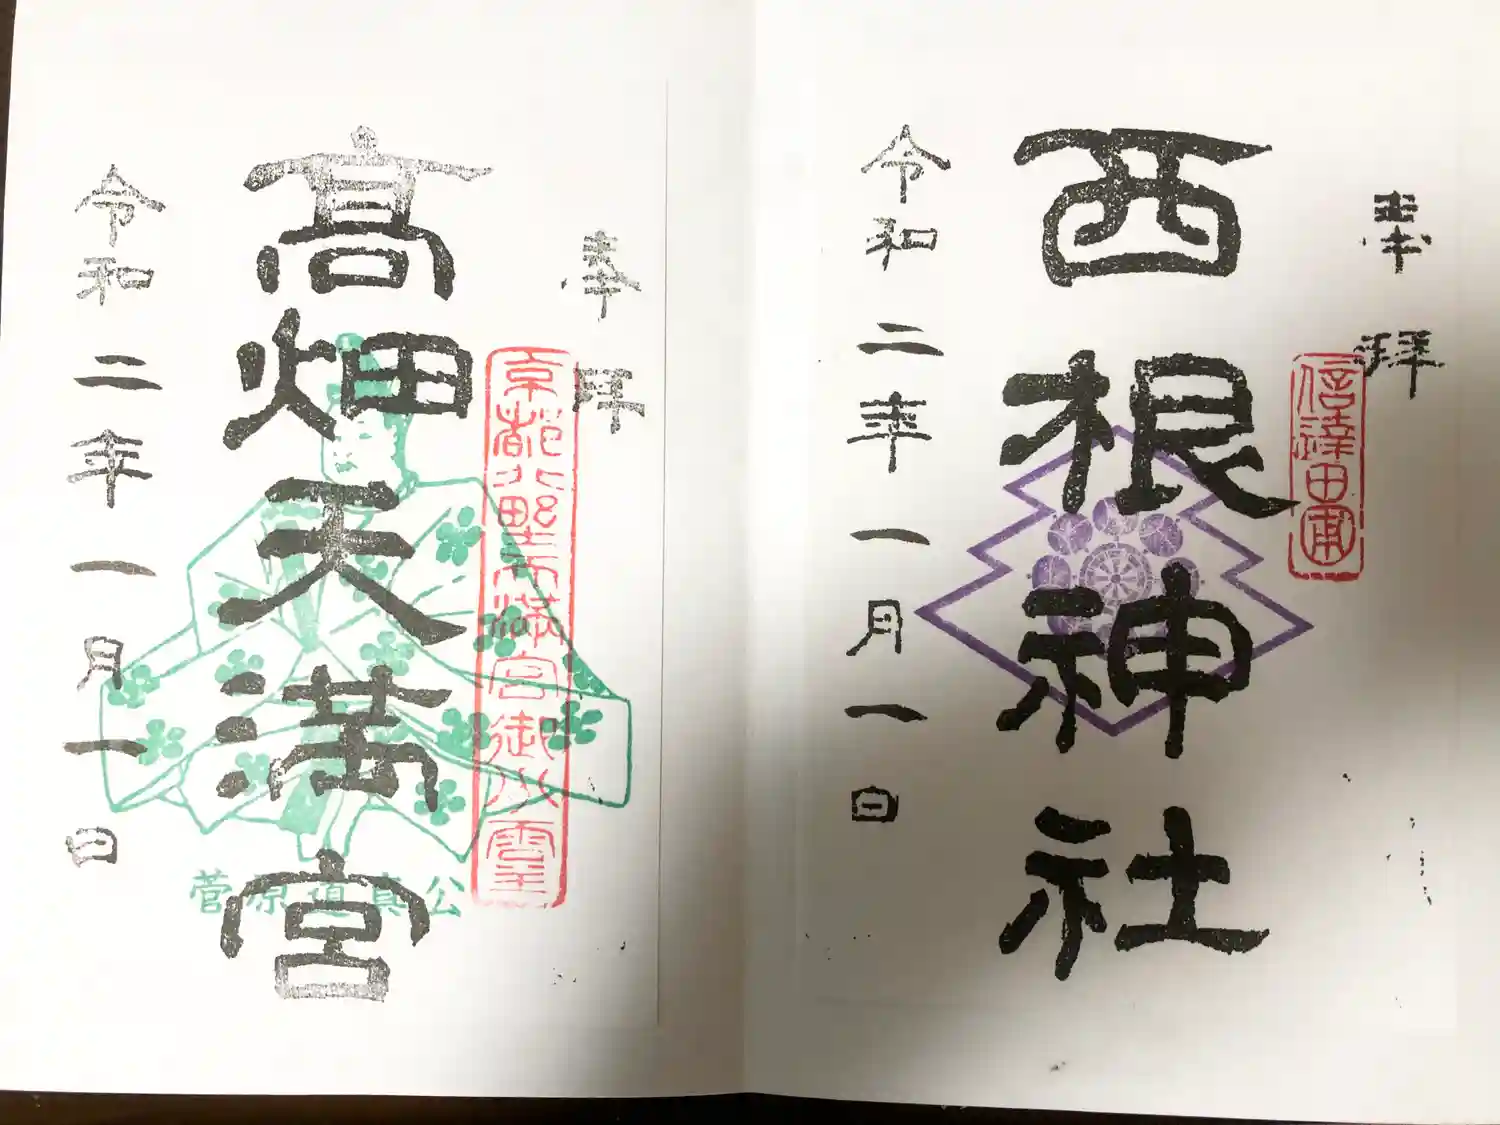 奉拝
信達田甫
西根神社
令和二年一月一日
奉拝
京都北野天満宮御分霊
高畑天満宮
菅原道真公
令和二年一月一日